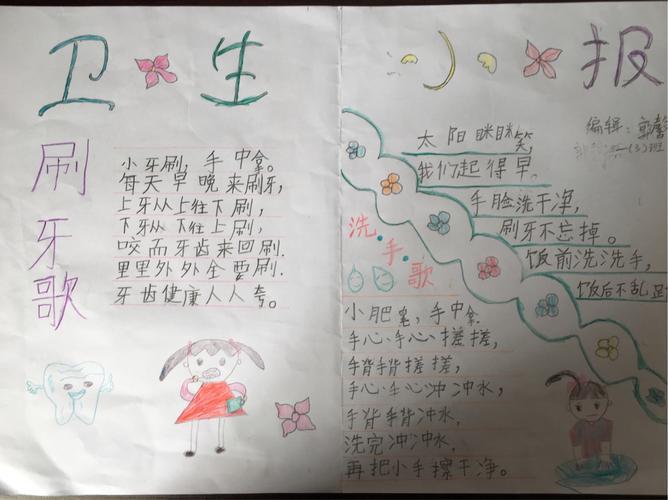 卫生
小报
刷牙歌
小牙刷，手中拿。
每天早晚来刷牙，
上牙从上往下刷，
下牙从下往上刷，
咬而牙齿来回刷.
里里外外全要刷.
牙齿健康人人夸。
编辑：
(3)班
太阳眯眯笑，
我们起得早。
手脸洗干净，
刷牙不忘掉。
饭前洗洗手，
饭后不乱
洗手歌
小肥皂，手中拿.
手心手心搓搓，
手背手背搓搓，
手心手心冲冲水，
手背手背冲水，
洗完冲冲水，
再把小手擦干净。